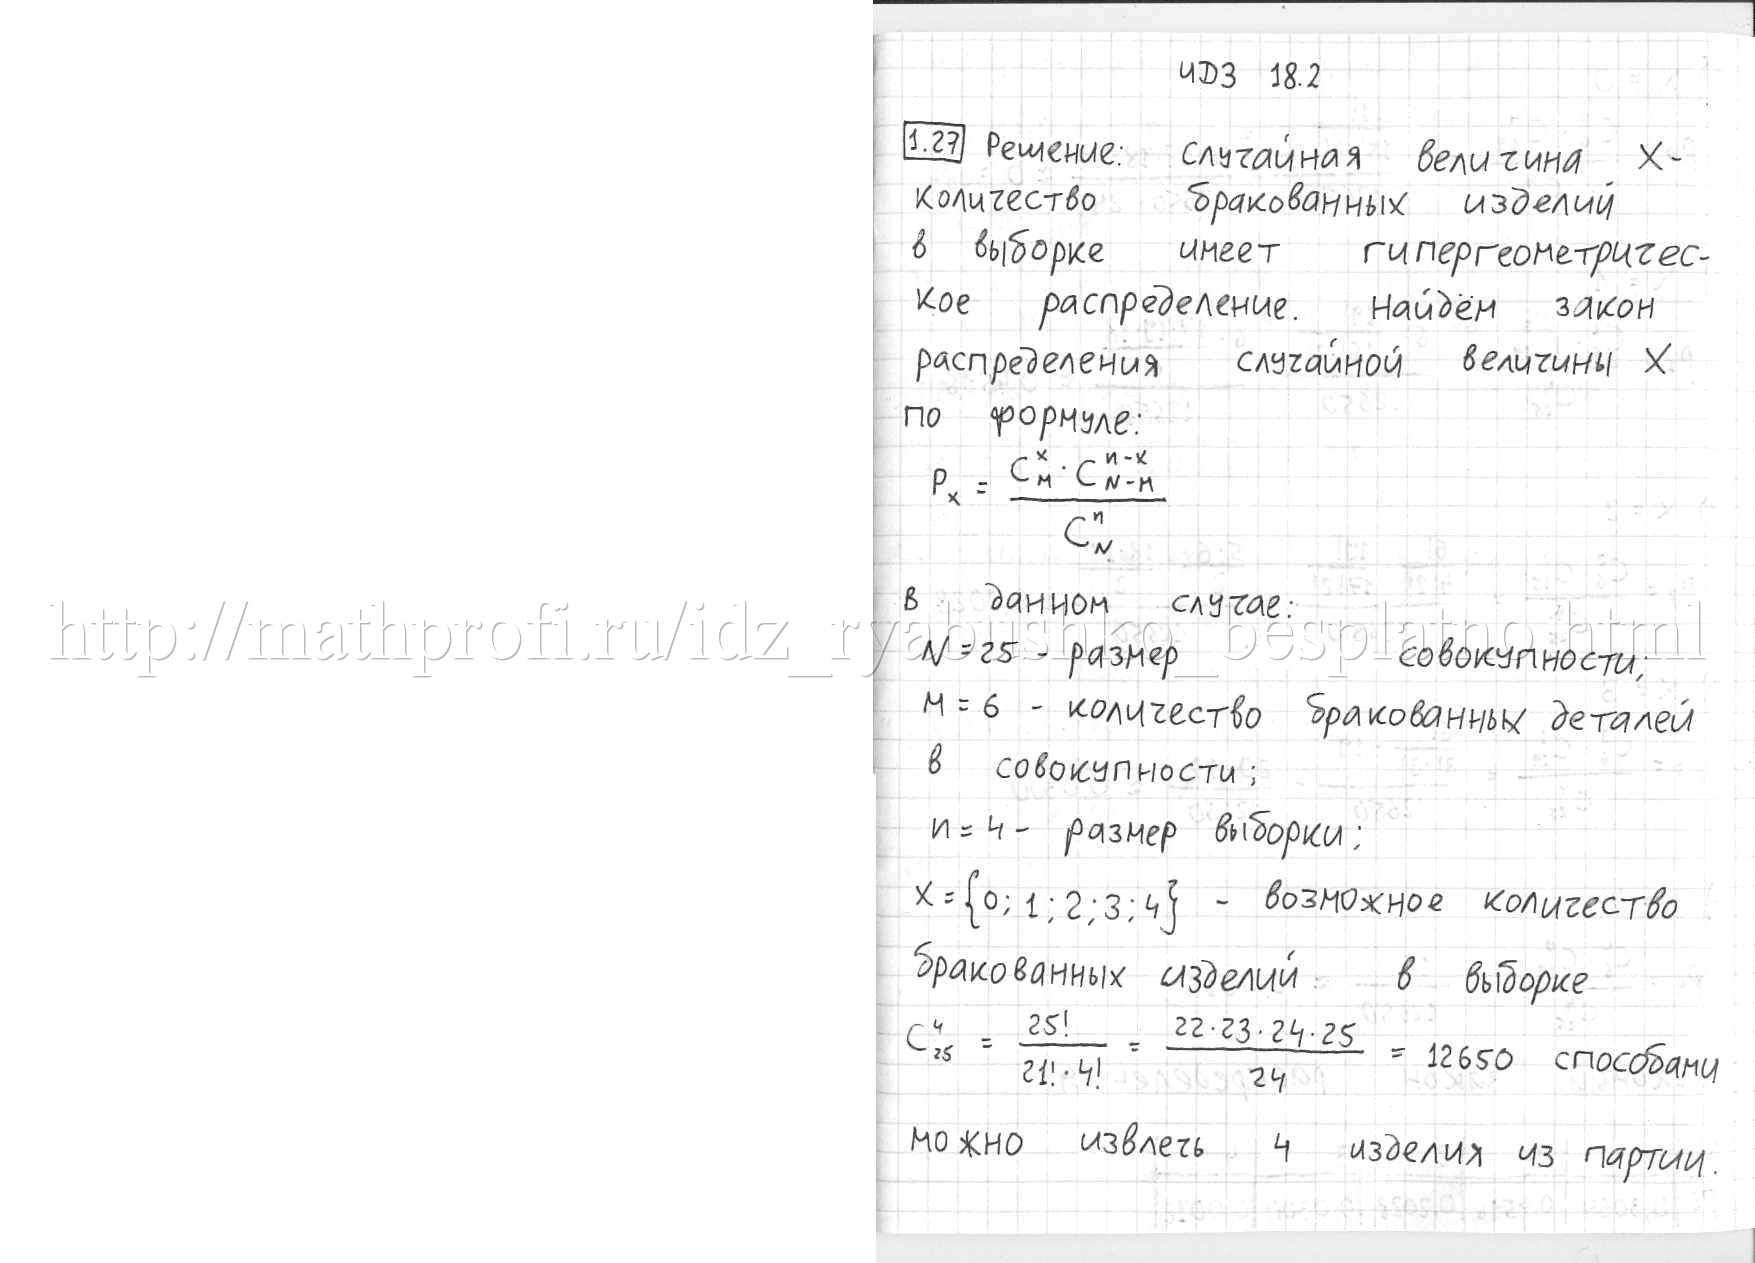 ИДЗ 18.2
1.27 Решение: случайная величина X-
количество бракованных изделий
в выборке имеет гипергеометричес-
кое распределение. Найдём закон
распределения случайной величины X
по формуле:
P_x = (C_M^x · C_{N-M}^{n-x}) / C_N^n
В данном случае:
http://mathprofi.ru/idz_ryabushko_besplatno.html
N=25 - размер совокупности;
M=6 - количество бракованных деталей
в совокупности;
n=4 - размер выборки;
x={0; 1; 2; 3; 4} - возможное количество
бракованных изделий в выборке
C_25^4 = 25! / (21!·4!) = (22·23·24·25) / 24 = 12650 способами
можно извлечь 4 изделия из партии.